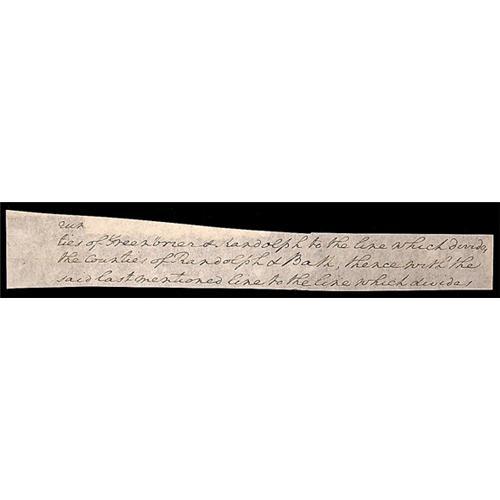 ties of Greenbrier & Randolph to the line which divides
the Counties of Randolph & Bath, thence with the
said last mentioned line to the line which divides